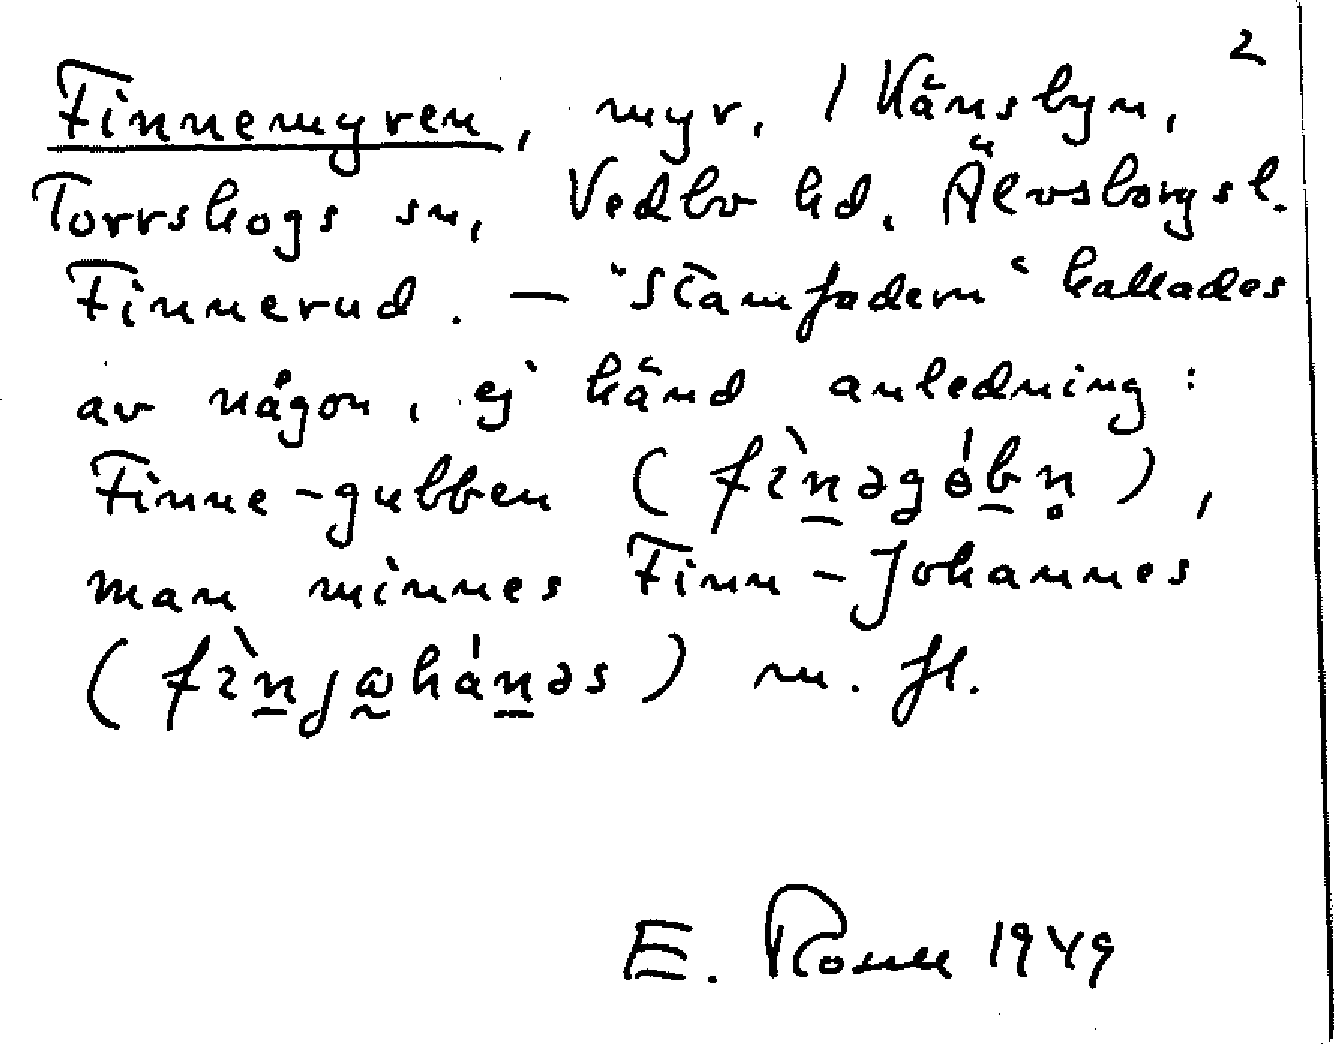 2
Finnemyren, myr. / Hänsbyn,
Torrskogs sn, Vedbo hd. Älvsborgs l.
Finnerud. — "Stamfadern" kallades
av någon, ej känd anledning:
Finne-gubben (fìn̲əgȯ́b̲n̥),
man minnes Finn-Johannes
(fìn̲jω̰hán̲əs) m. fl.
E. Rosell 1949